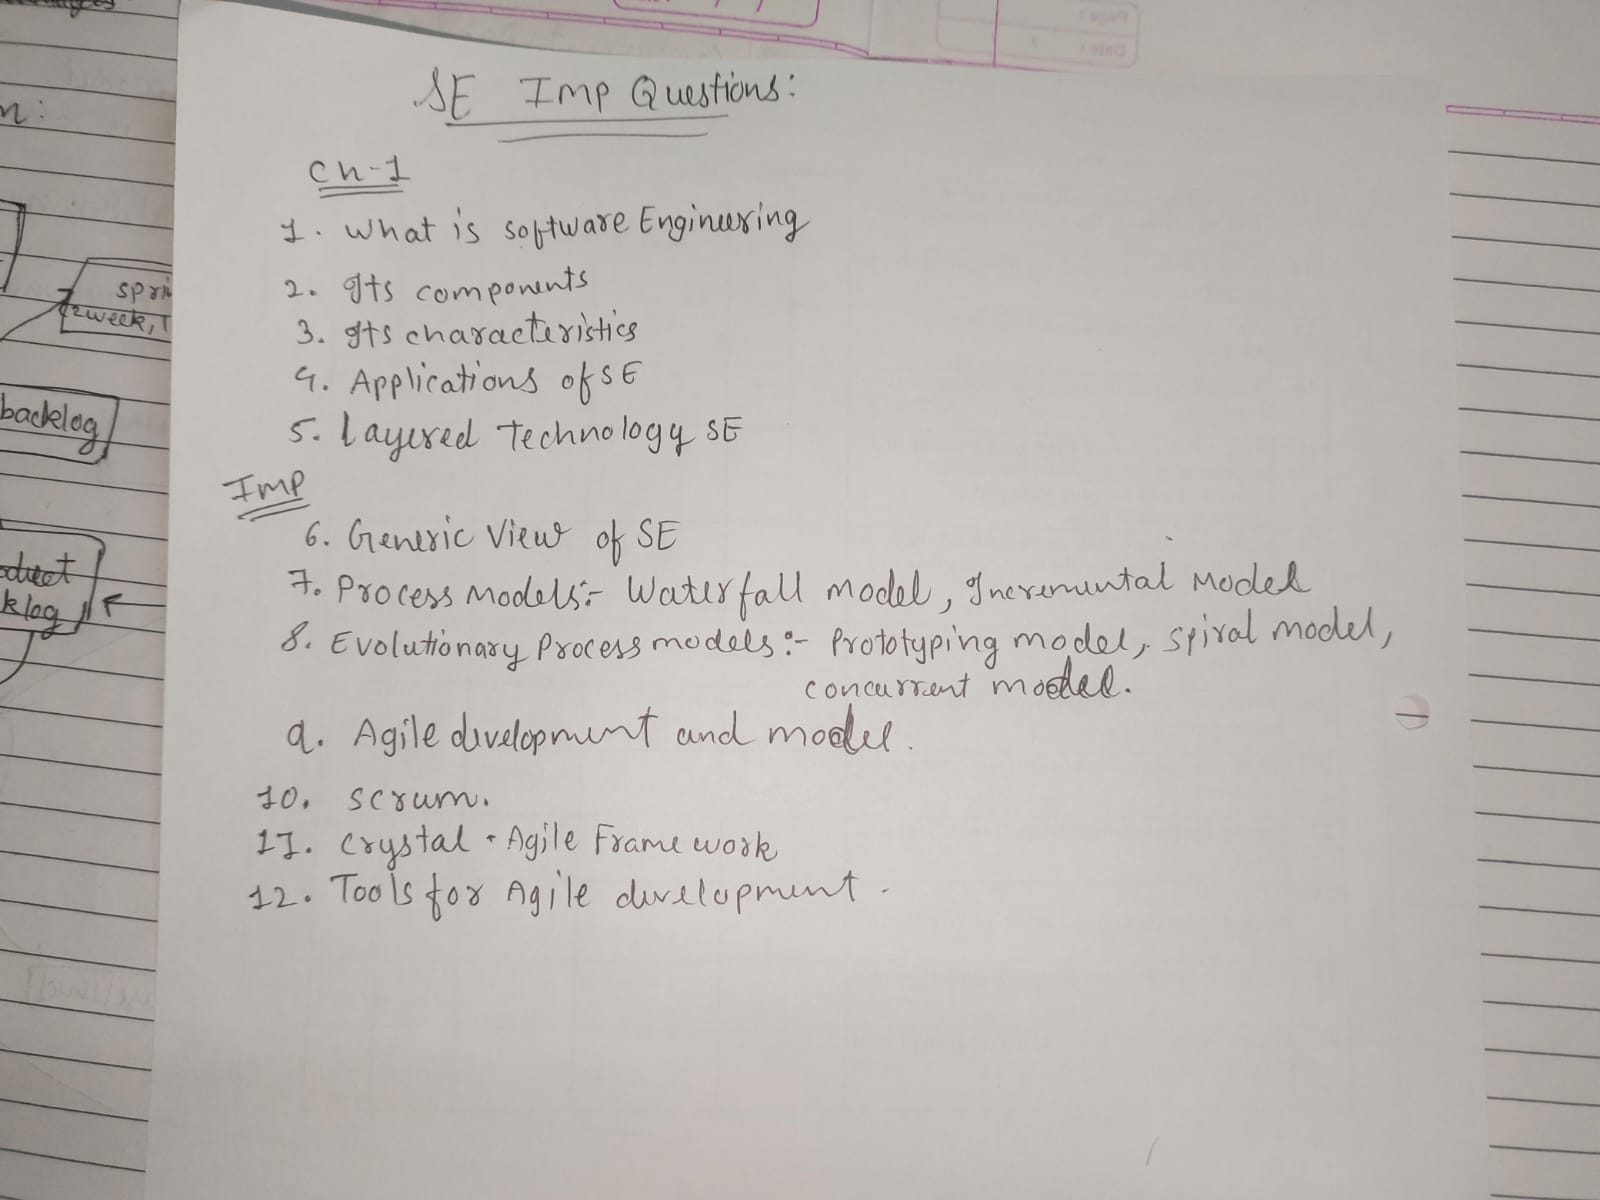 SE Imp Questions:
Ch-1
1. What is software Engineering
2. Its components
3. Its characteristics
4. Applications of SE
5. Layered Technology SE
Imp
6. Generic View of SE
7. Process Models:- Waterfall model, Incremental Model
8. Evolutionary Process models:- Prototyping model, spiral model,
concurrent model.
9. Agile development and model.
10. scrum.
11. Crystal - Agile Frame work
12. Tools for Agile development.
n:
spri
(2week, T
backlog
oduct
klog
Page:
Date: